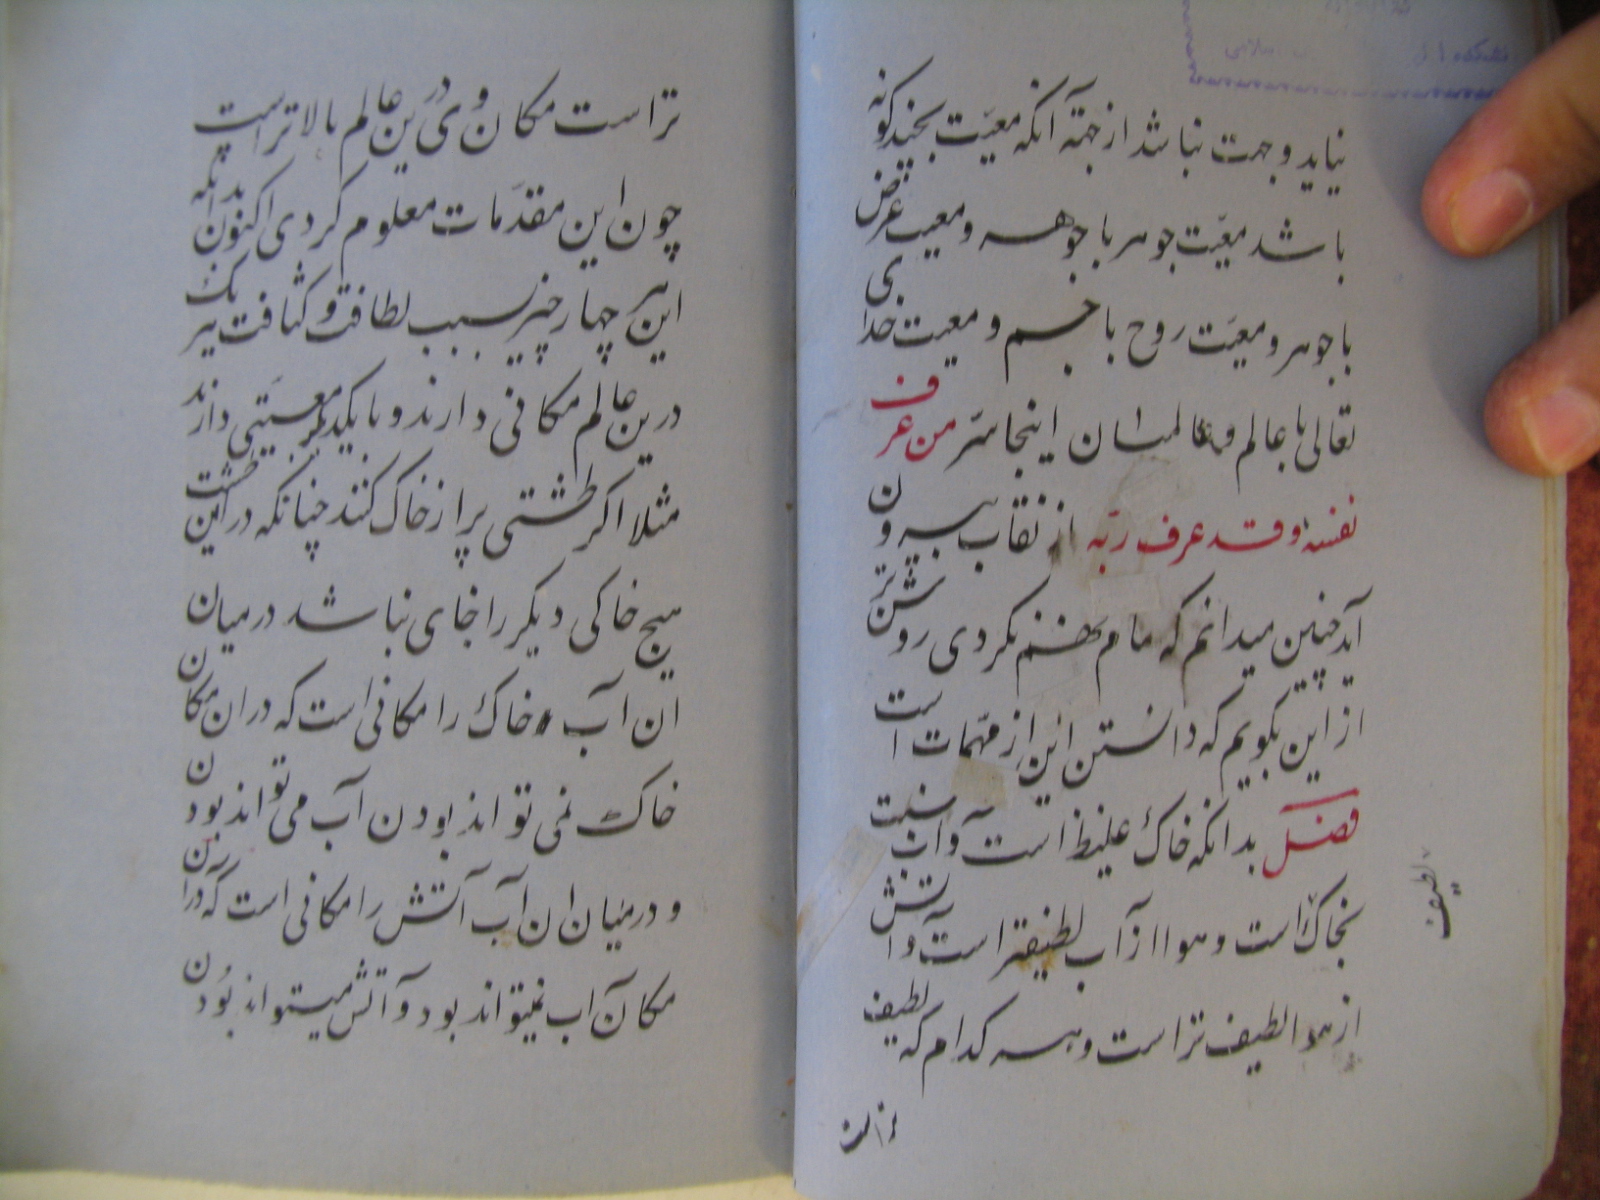 نیاید و جهت نباشد از جهته آنکه معیّت بچند کونه
باشد معیّت جوهر با جوهـر و معیت عرض
با جوهر و معیّت روح با جسم و معیت خدای
تعالی با عالم و عالمیان اینجا سرّ من عرف
نفسه وقد عرف ربّه از نقاب بیرون
آید چنین میدانم که تمام فهم نکردی روشن‌تر
از این بکویم که دانستن این از مهمّات است
فصل بدانکه خاک غلیظ است و آب نسبت
بخاک است و هوا از آب لطیفتر است و آتش
لطیف
از هوا لطیف تر است و هر کدام که لطیف
تر است
تر است مکان وی درین عالم بالاتر است
چون این مقدّمات معلوم کردی اکنون بدانکه
این هر چهار چیز بسبب لطافت و کثافت هر یک
درین عالم مکانی دارند و با یکدیکر معیّتی دارند
مثلا اکر طشتی پر از خاک کنند چنانکه در این طشت
هیچ خاکی دیکر را جای نباشد در میان
ان آب و خاک را مکانی است که در ان مکان
خاک نمی تواند بودن آب می تواند بودن
و در میان ان آب آتش را مکانی است که در ان
مکان آب نمیتواند بود و آتش میتواند بودن